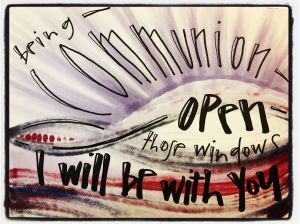 being
Communion
open
those windows
I will be with you